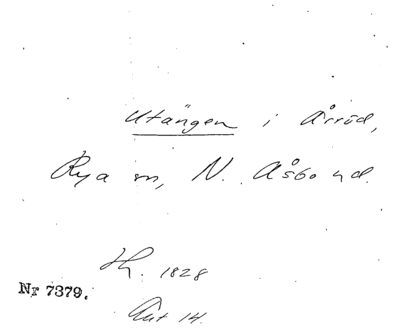 Utängen i Årröd,
Rya sn, N. Åsbo hd.
Hs. 1828
Nr 7379.
Ant 14.